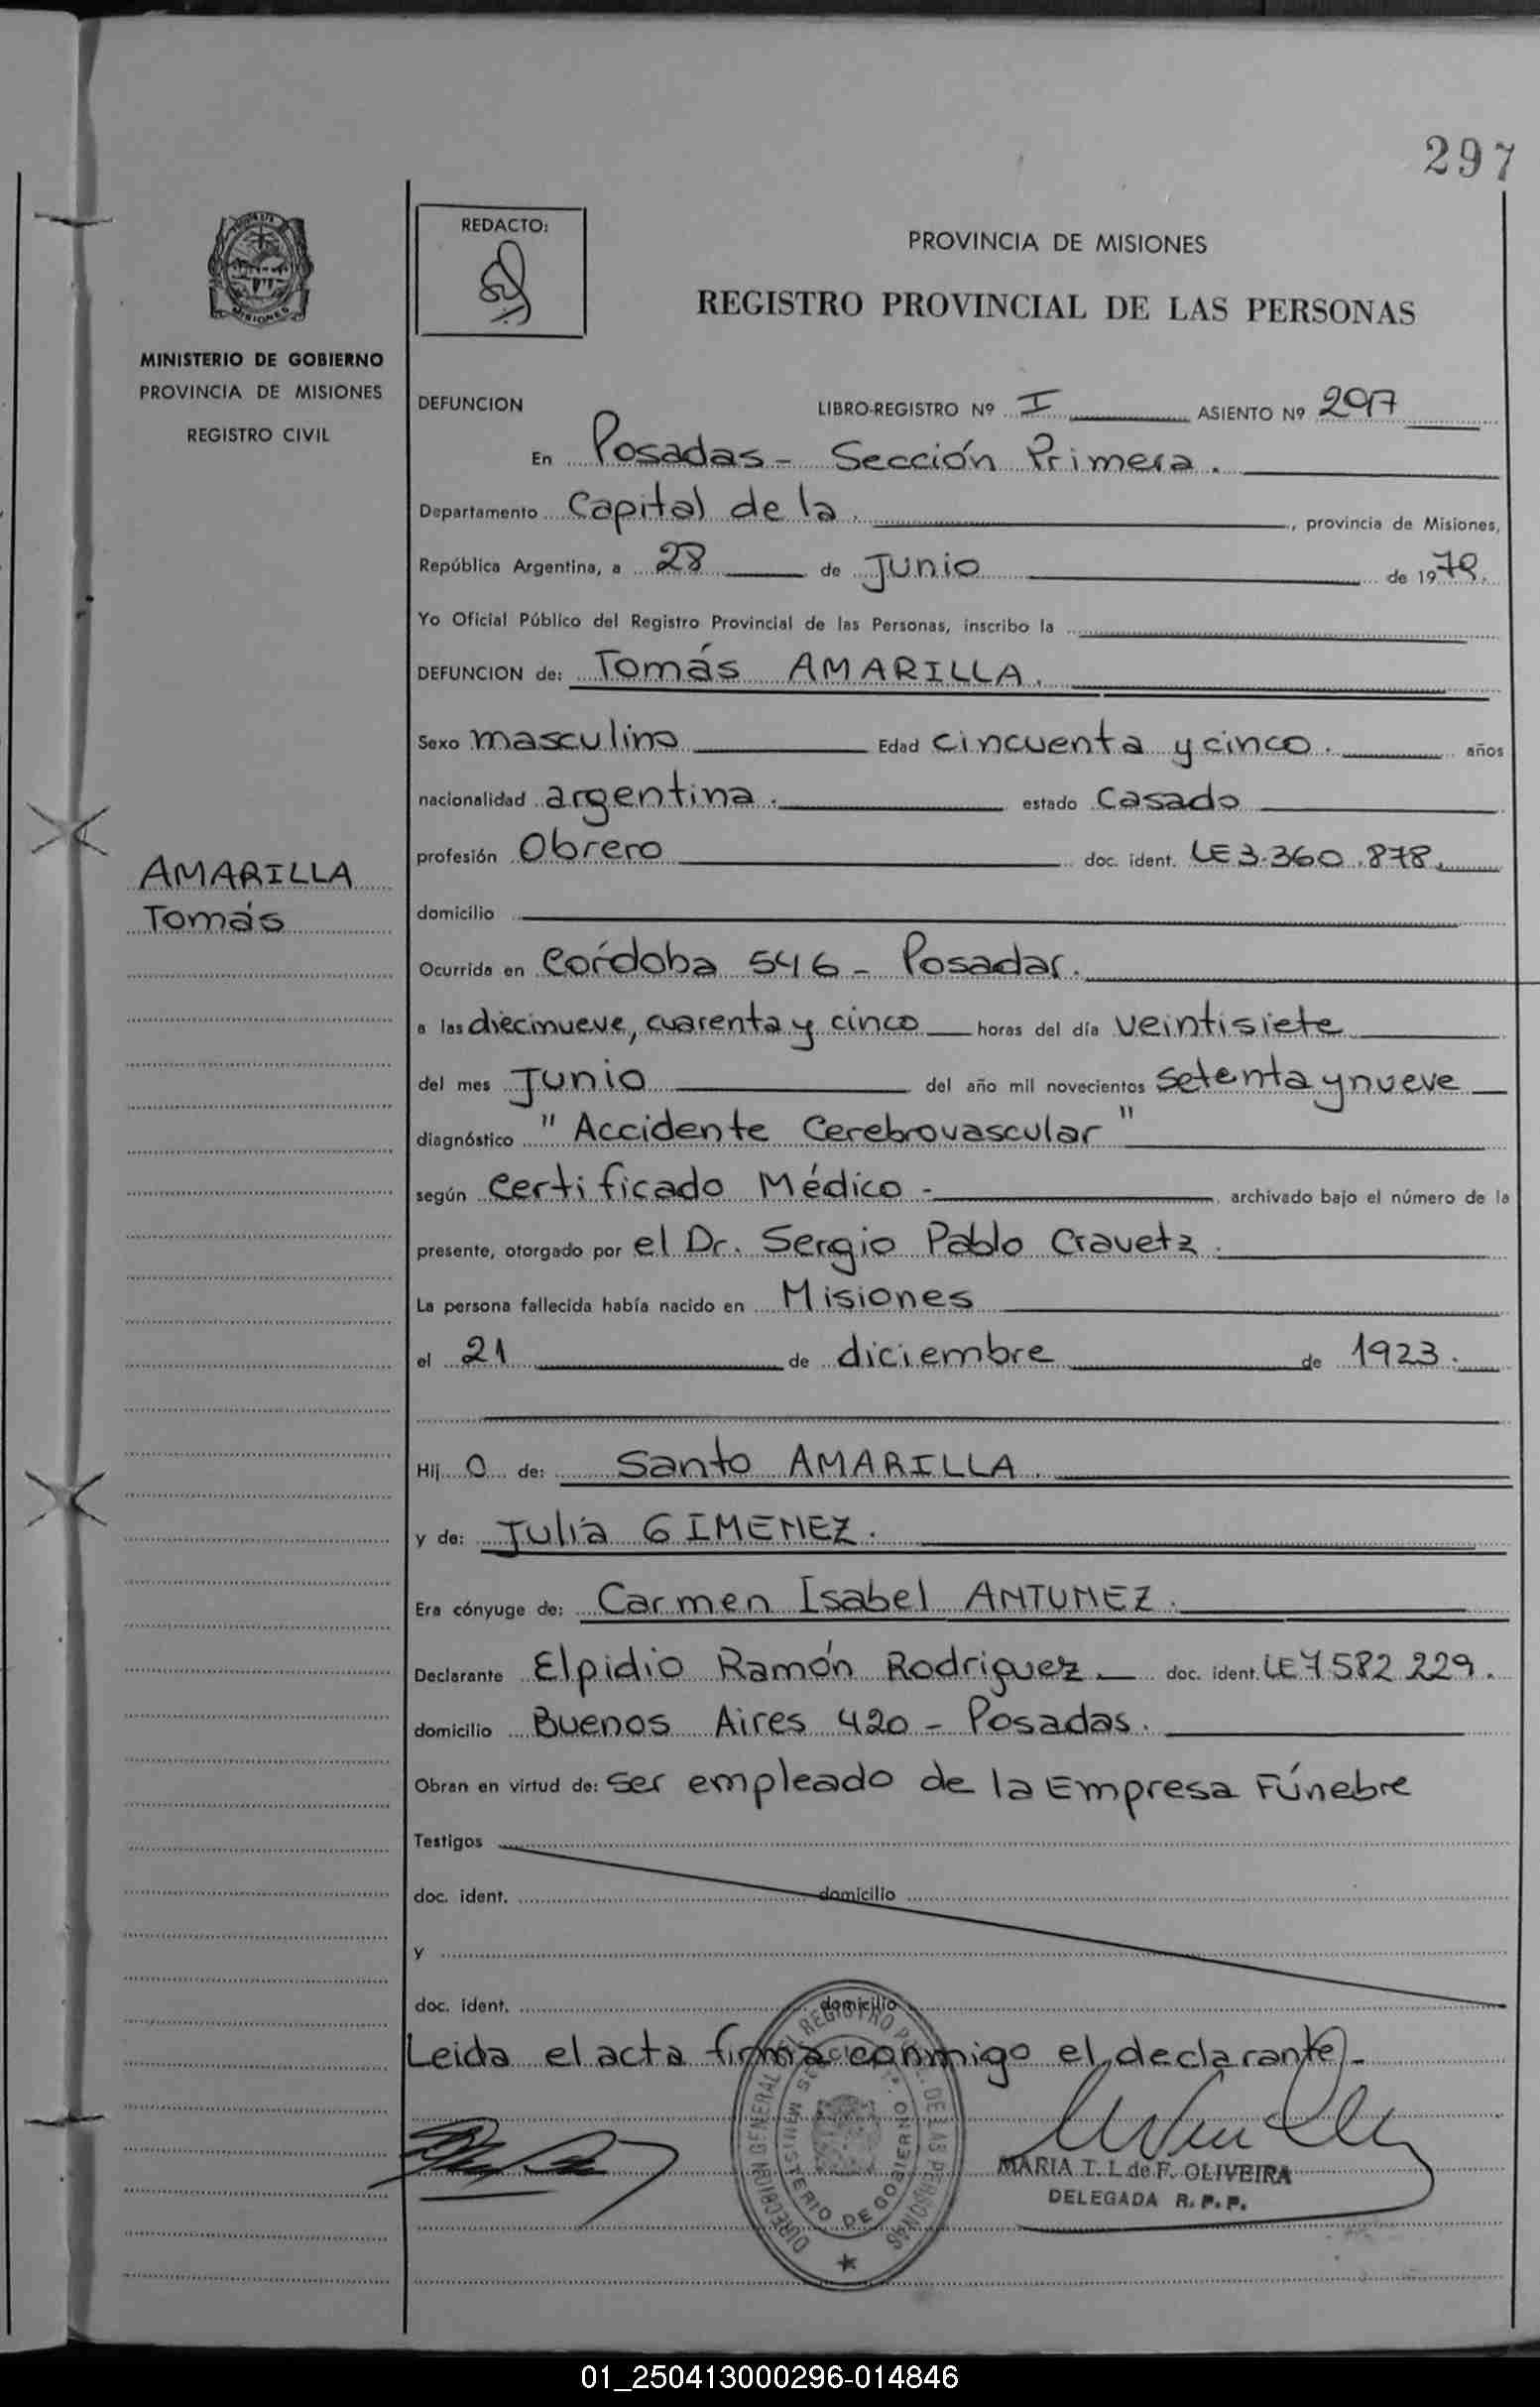 297
REDACTO:
PROVINCIA DE MISIONES
REGISTRO PROVINCIAL DE LAS PERSONAS
MISIONES
MINISTERIO DE GOBIERNO
PROVINCIA DE MISIONES
REGISTRO CIVIL
DEFUNCION LIBRO-REGISTRO Nº I ASIENTO Nº 297
En Posadas - Sección Primera.
Departamento Capital de la. , provincia de Misiones,
República Argentina, a 28 de Junio de 1979.
Yo Oficial Público del Registro Provincial de las Personas, inscribo la
DEFUNCION de: Tomás AMARILLA.
Sexo masculino Edad cincuenta y cinco. años
nacionalidad argentina. estado Casado
profesión Obrero doc. ident. LE 3.360.878.
AMARILLA
Tomás
domicilio
Ocurrida en Córdoba 546 - Posadas.
a las diecinueve, cuarenta y cinco horas del día veintisiete
del mes Junio del año mil novecientos setenta y nueve
diagnóstico "Accidente Cerebrovascular"
según Certificado Médico - archivado bajo el número de la
presente, otorgado por el Dr. Sergio Pablo Cravetz.
La persona fallecida había nacido en Misiones
el 21 de diciembre de 1923.
Hij o de: Santo AMARILLA.
y de: Julia GIMENEZ.
Era cónyuge de: Carmen Isabel ANTUNEZ.
Declarante Elpidio Ramón Rodriguez. doc. ident. LE 7582229.
domicilio Buenos Aires 420 - Posadas.
Obran en virtud de: ser empleado de la Empresa Fúnebre
Testigos
doc. ident. domicilio
y
doc. ident. domicilio
Leida el acta firma conmigo el declarante -
DIRECCION GENERAL DEL REGISTRO P. DE LAS PERSONAS
MINISTERIO DE GOBIERNO
MARIA T. L. de F. OLIVEIRA
DELEGADA R. P. P.
01_250413000296-014846